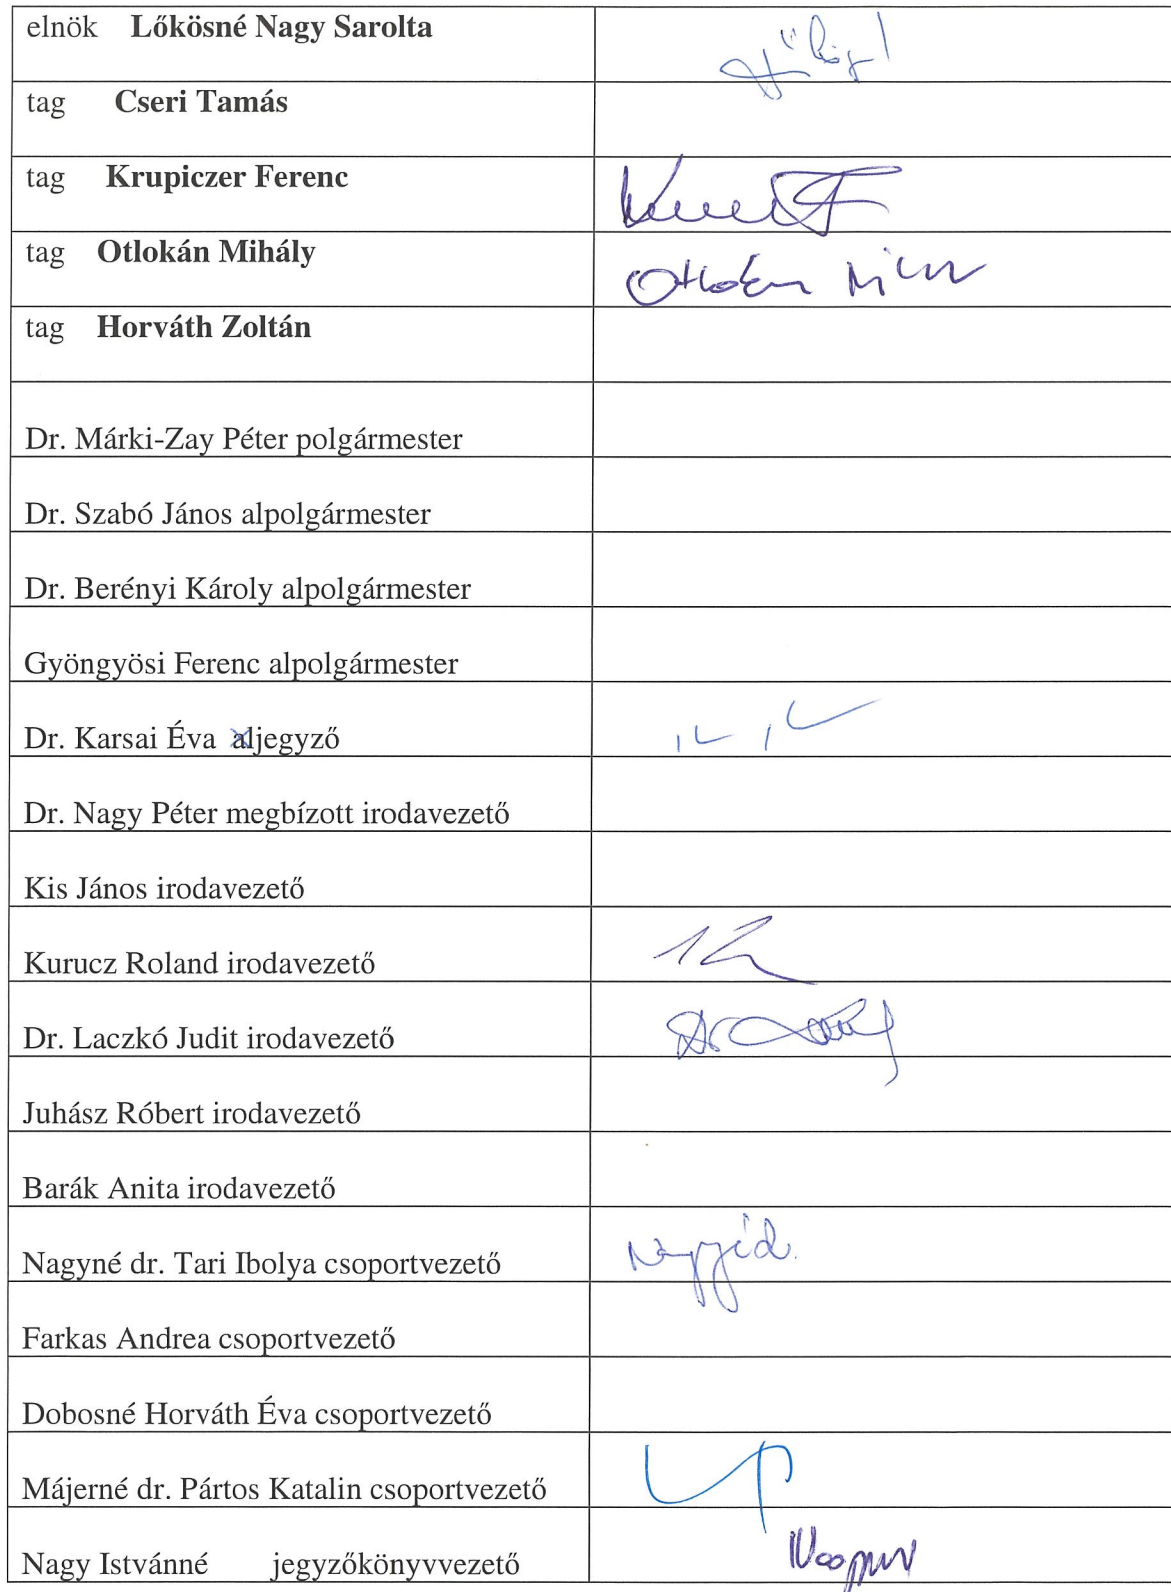 elnök Lőkösné Nagy Sarolta
tag Cseri Tamás
tag Krupiczer Ferenc
tag Otlokán Mihály
tag Horváth Zoltán
Dr. Márki-Zay Péter polgármester
Dr. Szabó János alpolgármester
Dr. Berényi Károly alpolgármester
Gyöngyösi Ferenc alpolgármester
Dr. Karsai Éva aljegyző
Dr. Nagy Péter megbízott irodavezető
Kis János irodavezető
Kurucz Roland irodavezető
Dr. Laczkó Judit irodavezető
Juhász Róbert irodavezető
Barák Anita irodavezető
Nagyné dr. Tari Ibolya csoportvezető
Farkas Andrea csoportvezető
Dobosné Horváth Éva csoportvezető
Májerné dr. Pártos Katalin csoportvezető
Nagy Istvánné jegyzőkönyvvezető